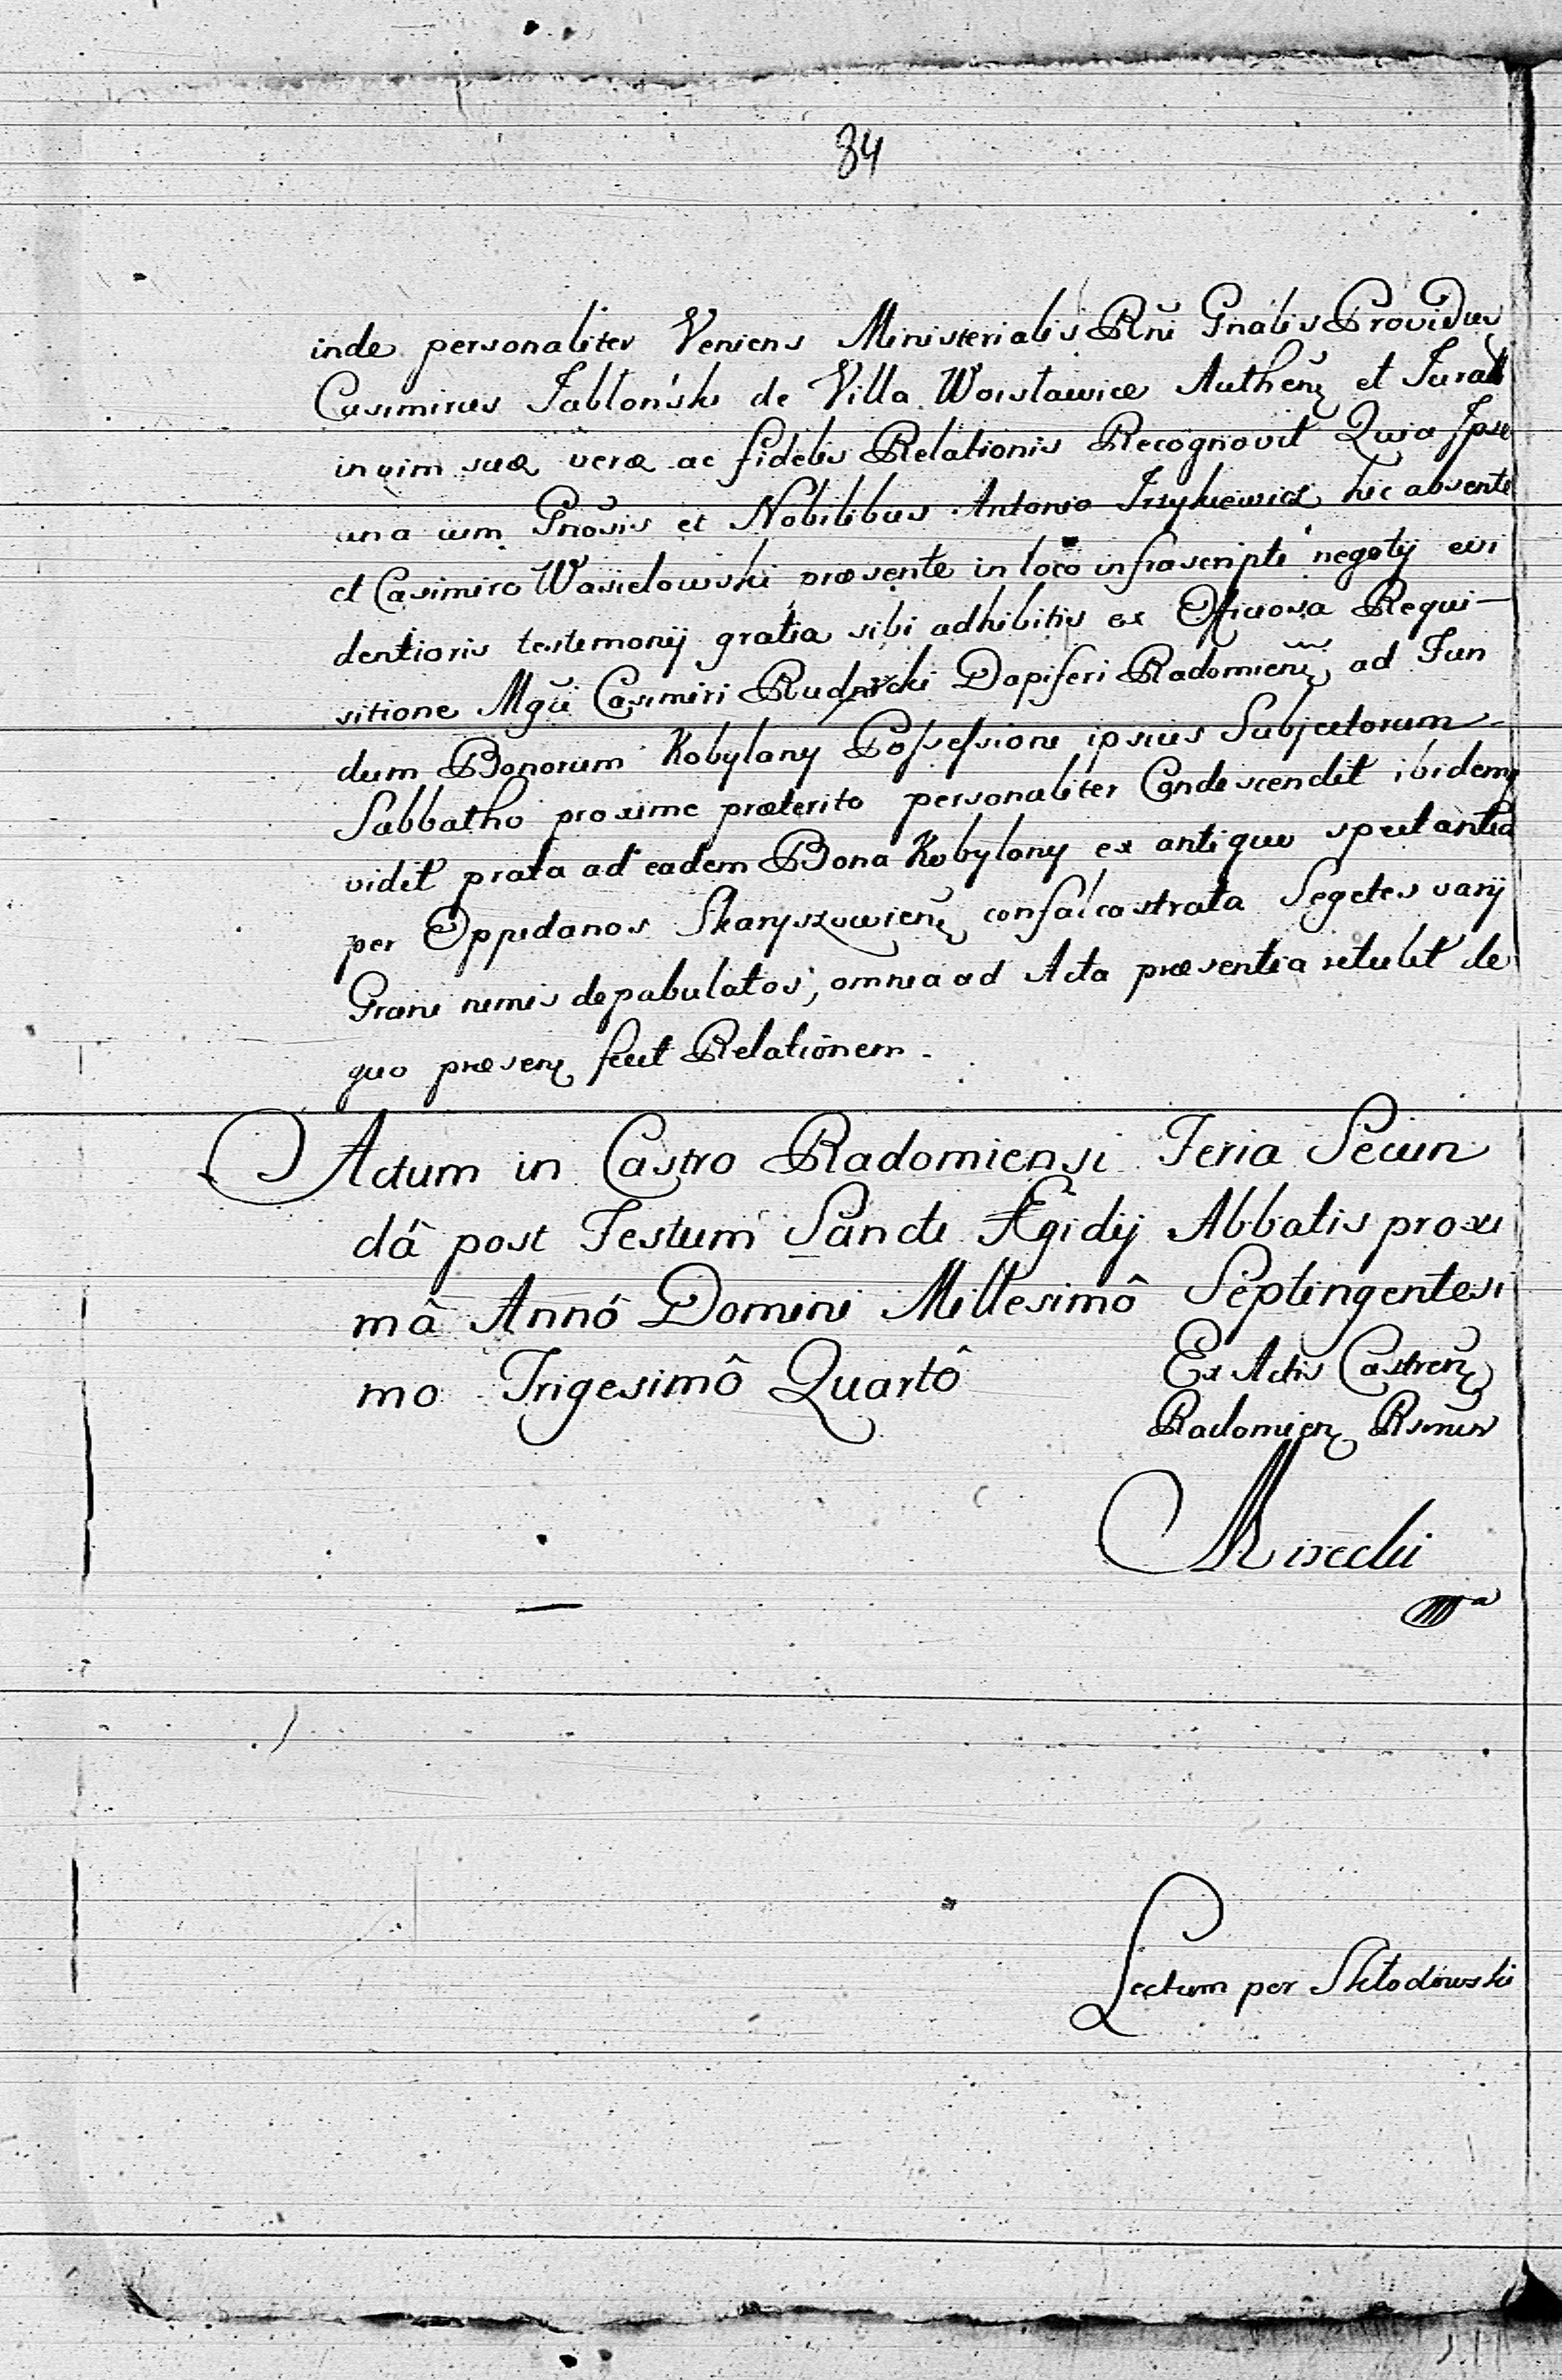 34
inde personaliter Veniens Ministerialis Rñi Gnalis Providus
Casimirus Jabłoński de Villa Woisławice Autheñ et Juratt
in vim suæ veræ ac fidelis Relationis Recognovit Quia Ipse
una cum Gnosis et Nobilibus Antonio Irzykiewicz hic absente
et Casimiro Wasielowski præsente in loco infrascripti negotij evi
dentioris testimonij gratia sibi adhibitis ex Officiosa Requi-
sitione Mgci Casimiri Rudnicki Dapiferi Radomieñ ad Fun
dum Bonorum Kobylany Possessionis ipsius Subjectorum
Sabbatho proxime præterito personaliter Condescendit ibidemq
vidit prata ad eadem Bona Kobylany ex antiquo spectantia
per Oppidanos Skaryszowieñ confalcastrata Segetes varij
Grani nimis depabulatos, omnia ad Acta præsentia retulit de
quo præsenq fecit Relationem.
Actum in Castro Radomiensi Feria Secun
dâ post Festum Sancti Ægidij Abbatis proxi
mâ Annó Domini Millesimô Septingentesi
mo Trigesimô Quartô
Ex Actis Castreñ
Radomienq
Lectum per Skłodowski